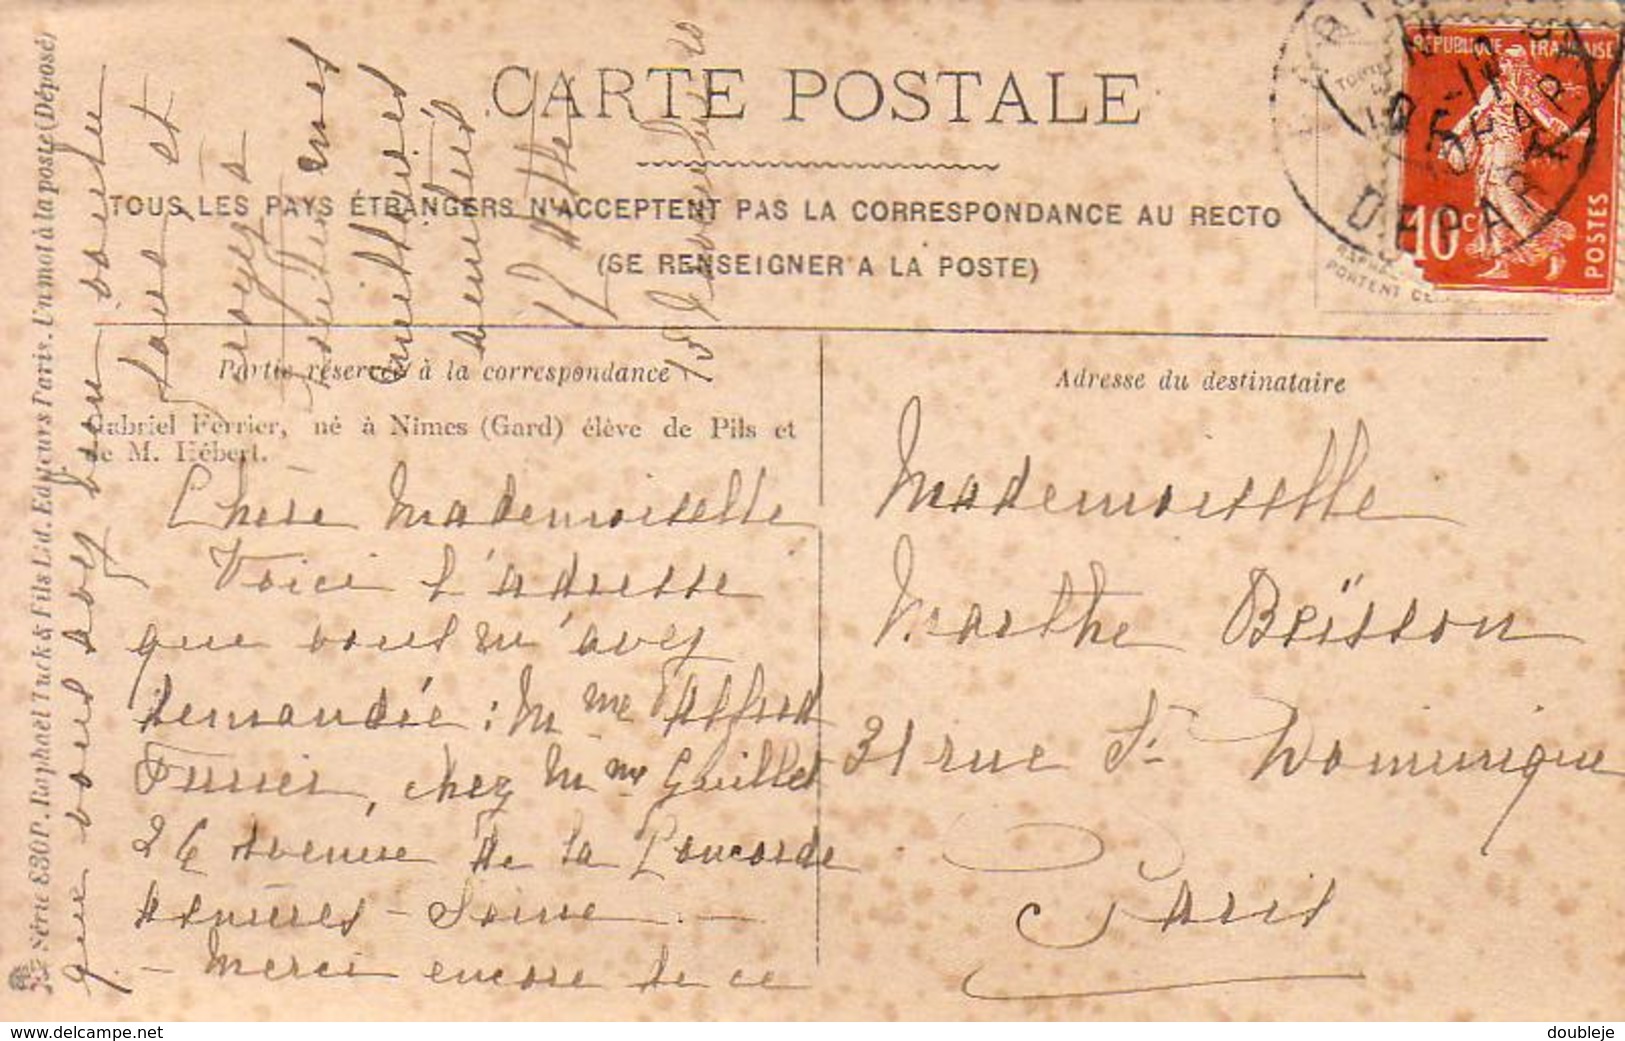 CARTE POSTALE
TOUS LES PAYS ÉTRANGERS N'ACCEPTENT PAS LA CORRESPONDANCE AU RECTO
(SE RENSEIGNER A LA POSTE)
REPUBLIQUE FRANÇAISE
10 c
POSTES
DEPART
PORTENT
Partie réservée à la correspondance
Gabriel Ferrier, né à Nimes (Gard) élève de Pils et
de M. Hébert.
Chère Mademoiselle
Voici l'adresse
que vous m'avez
demandée : Mme Alfred
chez Mme Guillet
26 Avenue de la Concorde
Asnières - Seine -
- Merci encore de ce
que vous avez bien voulu
faire et
croyez à
mes
meilleures
amitiés
15
Adresse du destinataire
Mademoiselle
Marthe Beïsson
31 rue St Dominique
Paris
Série 830 P. Raphaël Tuck & Fils Ltd. Editeurs Paris. Un mot à la poste (Déposé)
www.delcampe.net
doubleje